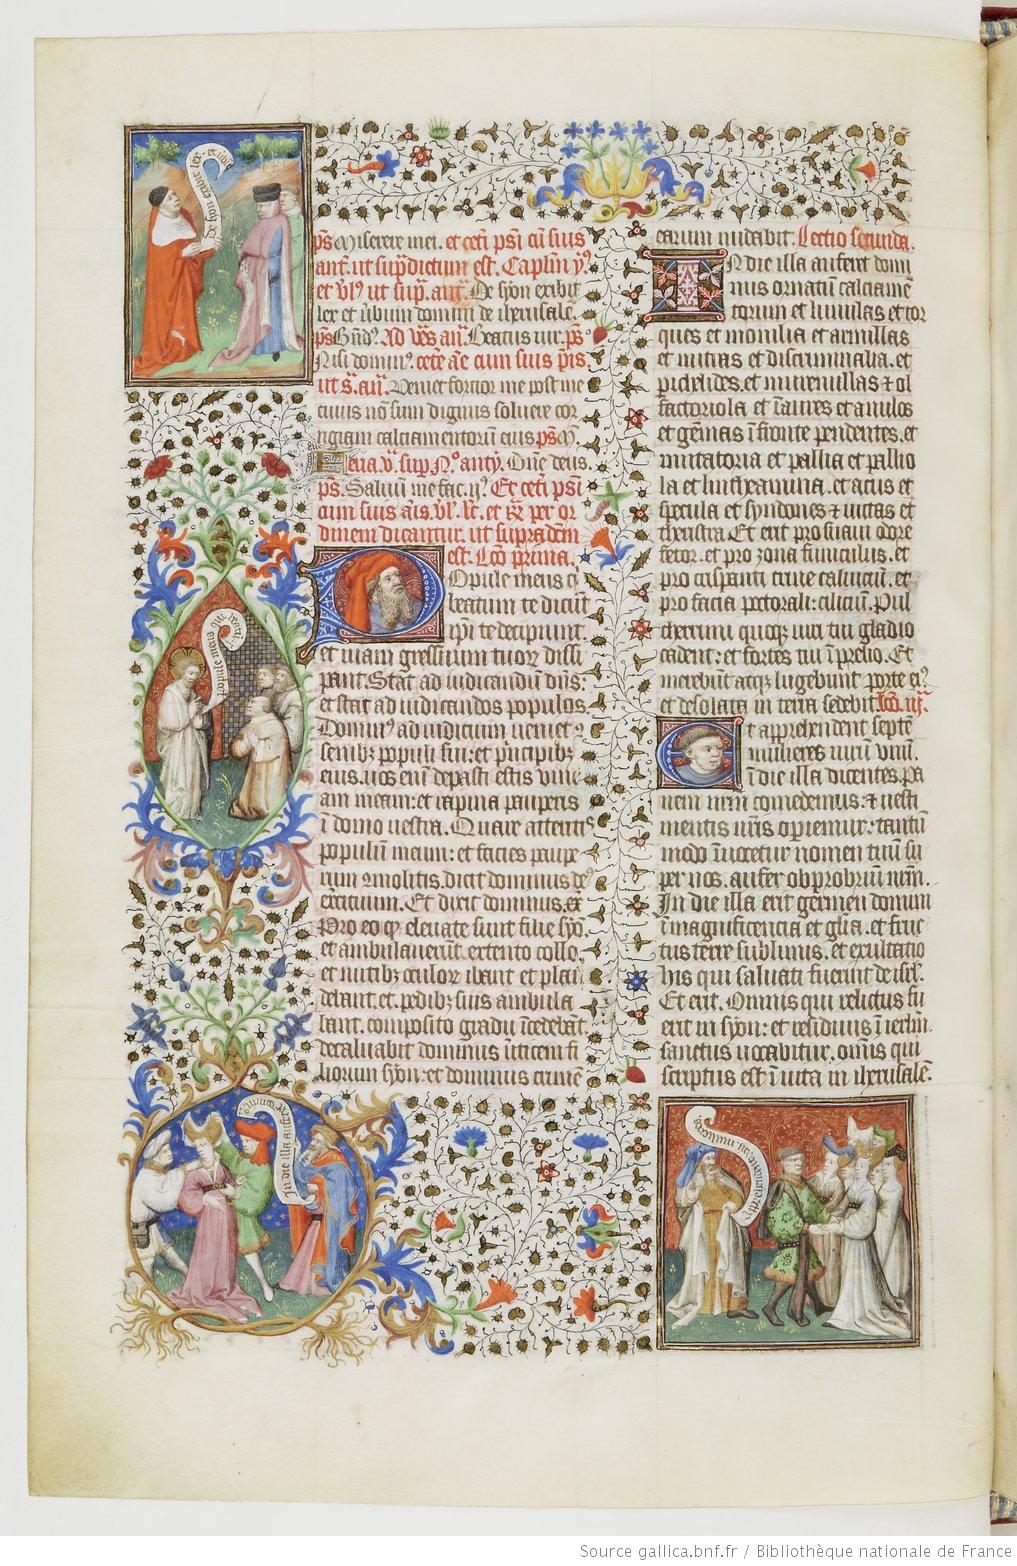 ps Miserere mei. et ceti psi cu suis
ant. ut supdictum est. Caplm
et ut sup. ant. De syon exibit
lex et ubum domini de iherusale.
ps Ad ant. Beatus uir. ps
Nisi domin⁹. cum suis
ut s. ant. Veniet fortior me post me
cuius no sum dignus soluere cor
rigiam calciamentoru eius ps
sup
ps. Saluu me fac. Et ceti psi
cum suis et per or
dinem dicantur. ut supradem
est. Lco prima.
Opule meus q
beatum te dicut
ipi te decipiunt.
et uiam gressuum tuoꝝ dissi
pant. Stat ad iudicandum dns:
et stat ad iudicandos populos
Domin⁹ ad iudicium ueniet
senibꝫ populi sui: et pncipibꝫ
eius. uos eni depasti estis uine
am meam: et rapina pauperis
i domo uestra. Quare atteritis
populum meum: et facies paupe
rum dicit dominus
exercituum. Et dixit dominus.
Pro eo qꝫ eleuate sunt filie syo.
et ambulauerut extento collo.
et nutibꝫ oculoꝝ ibant et plau
debant. et. pedibꝫ suis ambula
bant. composito gradu icedebat.
decaluabit dominus uticem fi
liorum syon: et dominus crinem
earum nudabit. Lectio secunda.
IN die illa auferet domi
nus ornatu calciame
torum et lunulas et tor
ques et monilia et armillas
et mitras et discriminalia. et
piscelides. et murenulas ⁊ ol
factoriola et iaures et anulos
et gemas i fronte pendentes. et
mutatoria et pallia et pallio
la et lintheamina. et acus et
specula et syndones ⁊ uittas et
theristra. Et erit pro suaui odore
fetor. et pro zona funiculus. et
pro crispanti crine caluiciu. et
pro facia pectorali: ciliciu. Pul
cherrimi quoqꝫ uiri tui gladio
cadent: et fortes tui i prelio. Et
merebunt atqꝫ lugebunt porte ei⁹
et desolata in terra sedebit. Lco iij.
Et apprehendent septe
mulieres uirum unu
i die illa dicentes. pa
nem nrm comedemus: ⁊ uesti
mentis nris operiemur: tantu
modo iuocetur nomen tuu su
per nos. aufer obprobriu nrm.
In die illa erit germen domini
i magnificencia et glia. et fruc
tus terre sublimis. et exultatio
hiis qui saluati fuerint de isrl.
Et erit. Omnis qui relictus fu
erit in syon: et residuus i ierlm.
sanctus uocabitur. omis qui
scriptus est i uita in iherusale.
In die illa
Source gallica.bnf.fr / Bibliothèque nationale de France